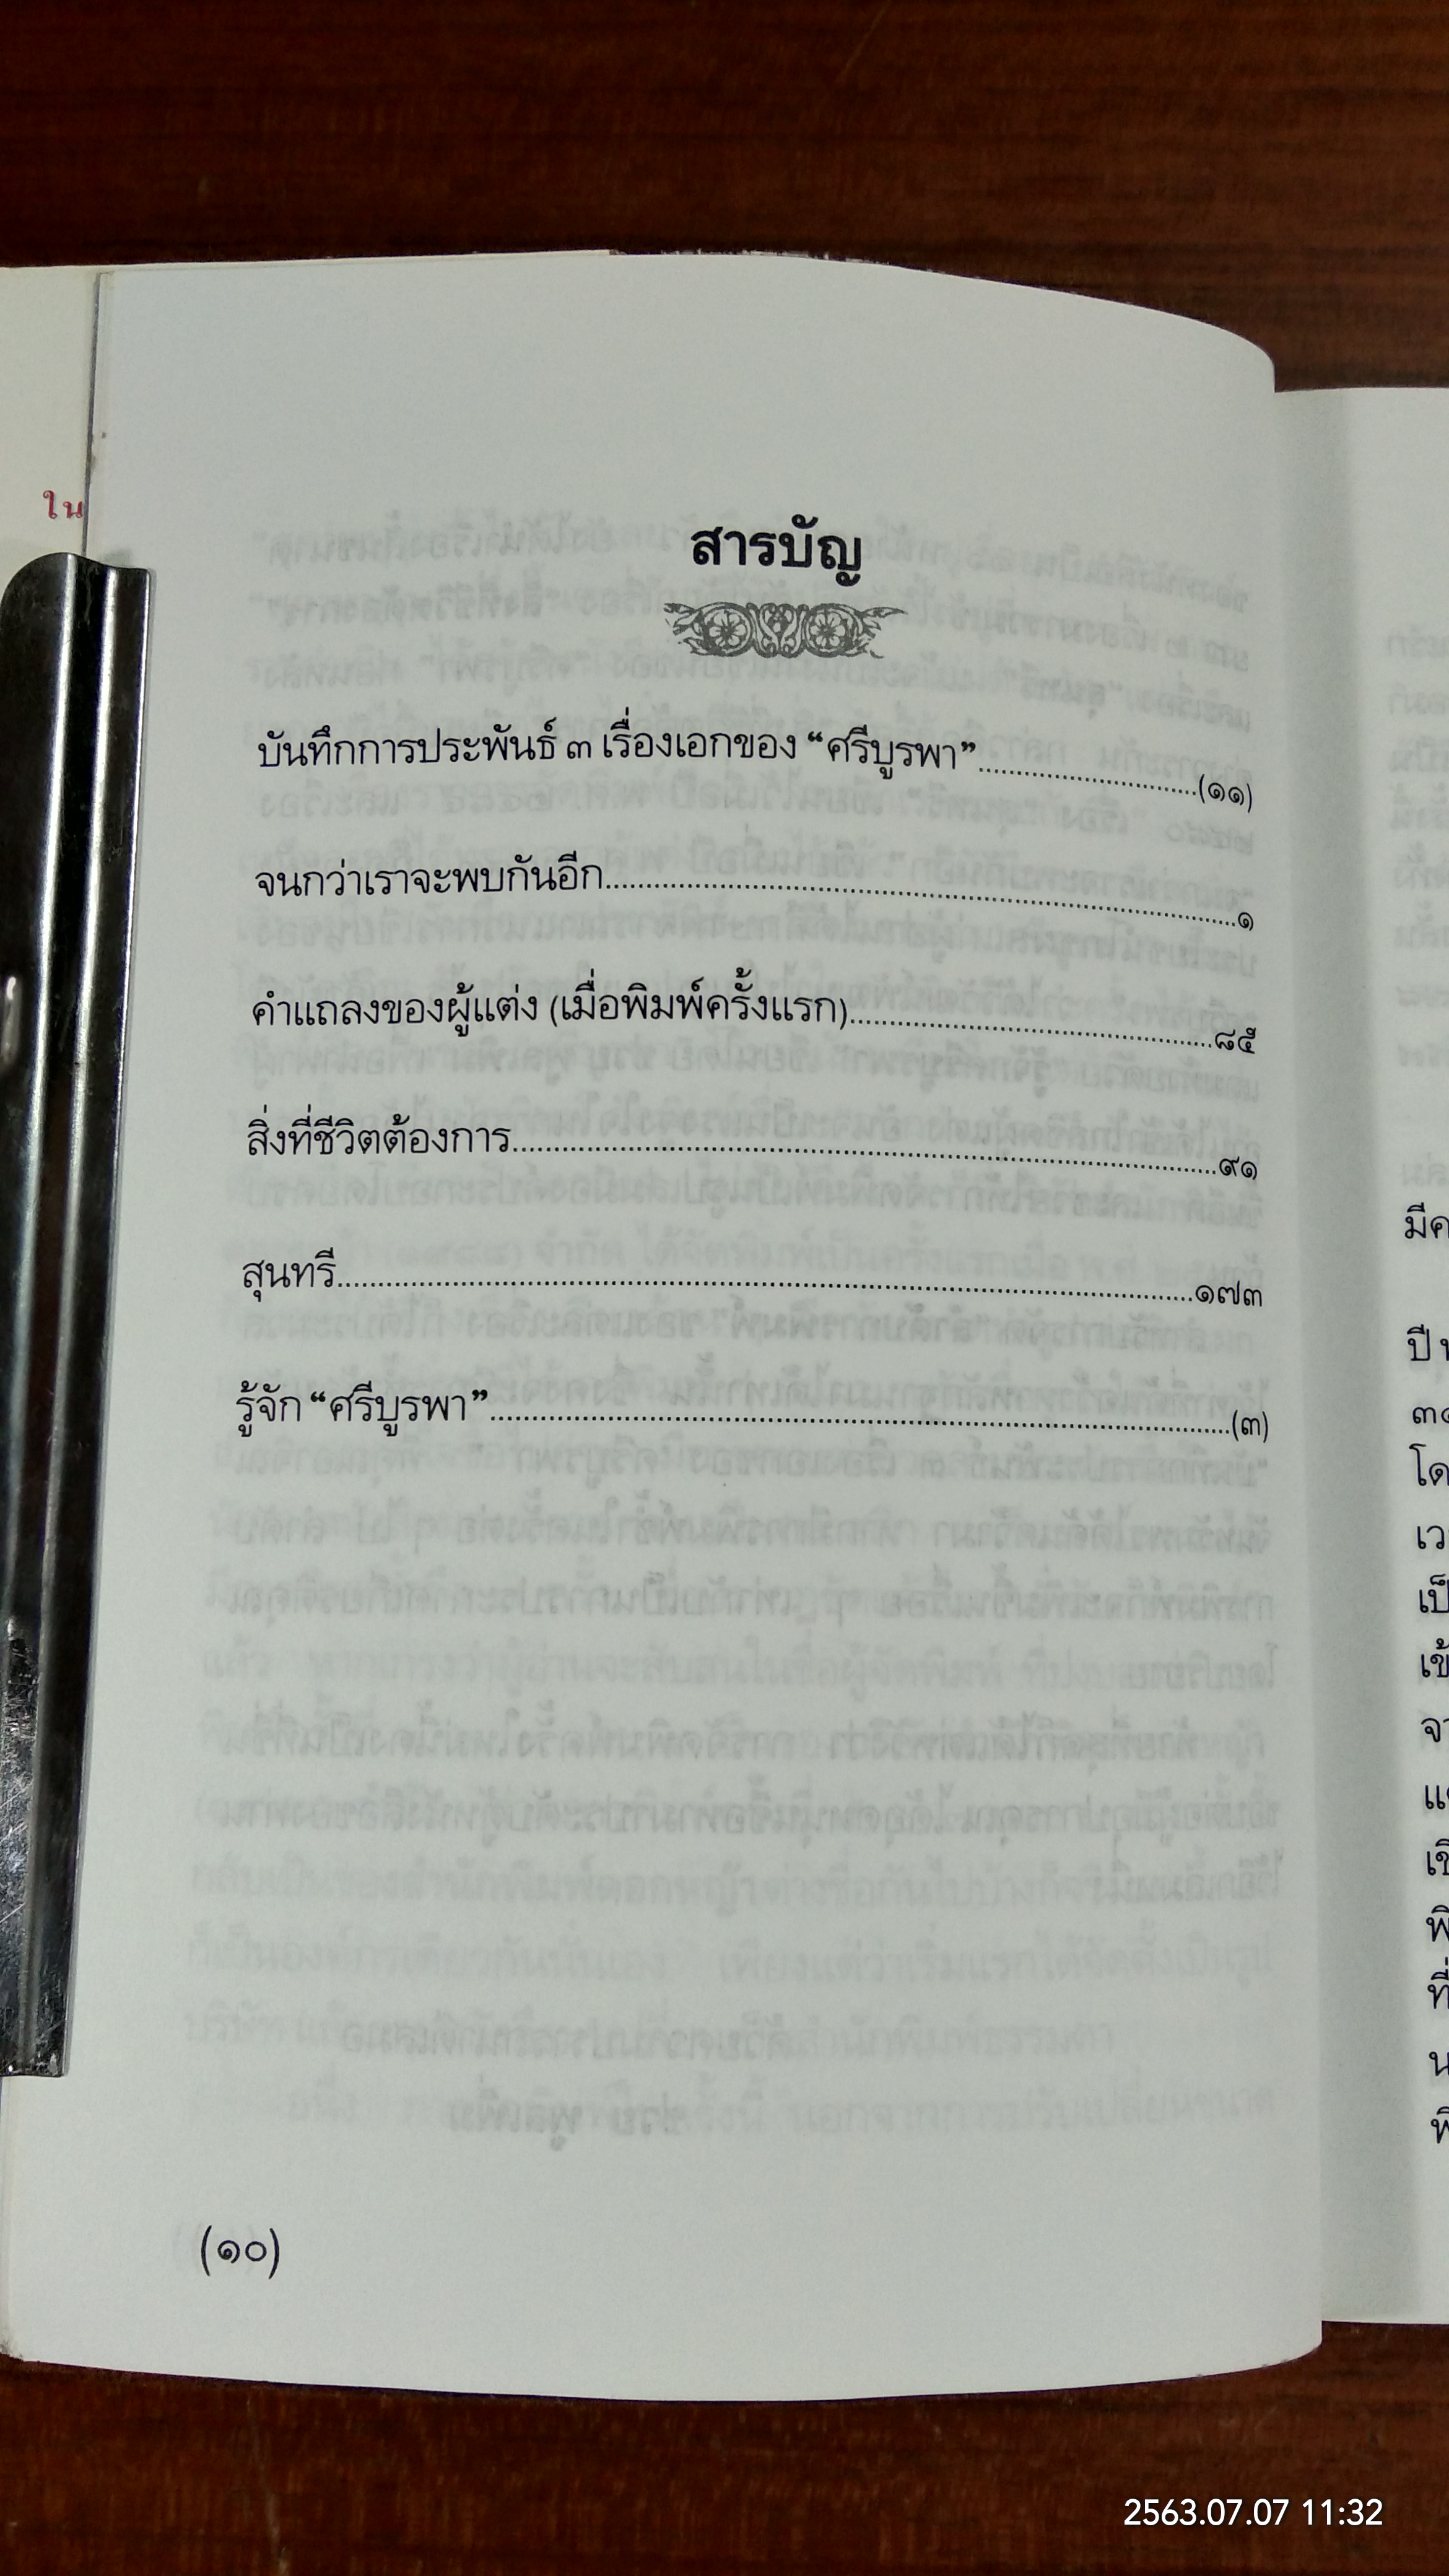 ใน
สารบัญ
บันทึกการประพันธ์ ๓ เรื่องเอกของ “ศรีบูรพา”........................(๑๑)
จนกว่าเราจะพบกันอีก........................๑
คำแถลงของผู้แต่ง (เมื่อพิมพ์ครั้งแรก)........................๘๕
สิ่งที่ชีวิตต้องการ........................๙๑
สุนทรี........................๑๗๓
รู้จัก “ศรีบูรพา”........................(๓)
(๑๐)
2563.07.07 11:32